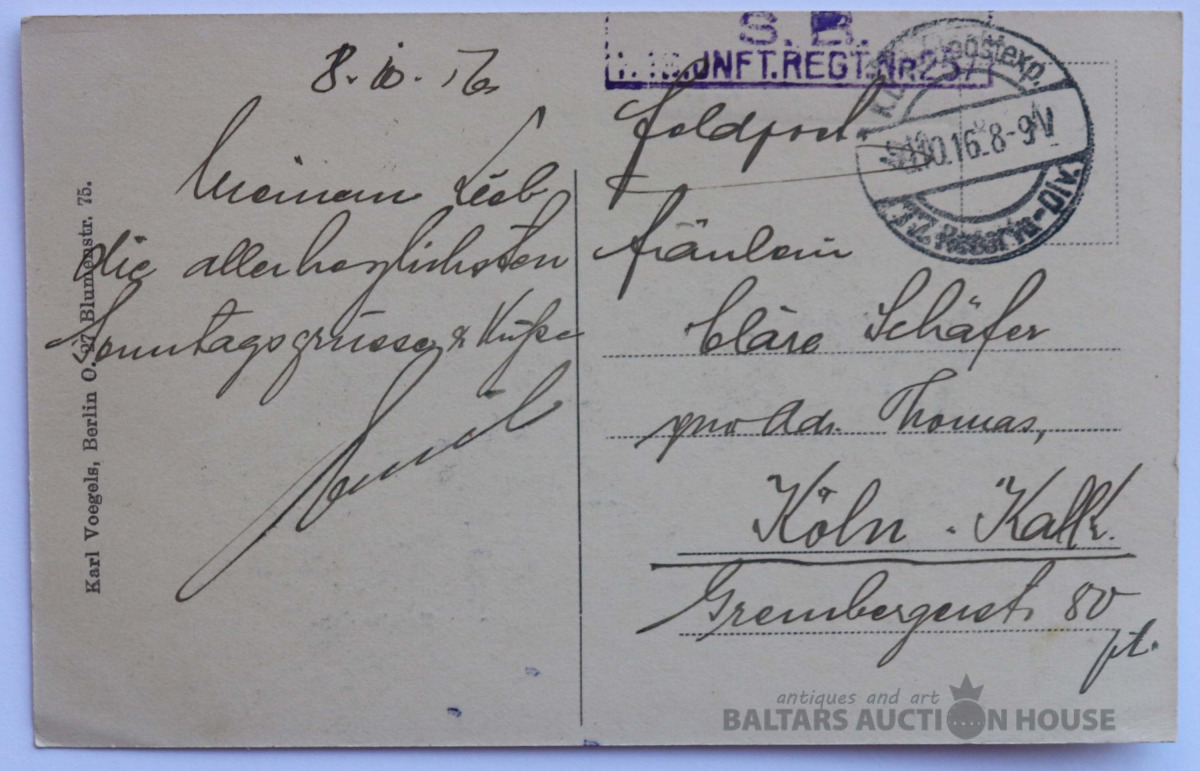 8.10.16
Meinem Lieb
die allerherzlichsten
Sonntagsgrüsse & Küße
Karl Voegels, Berlin O. 27, Blumenstr. 75.
S. B.
INFT. REGT. NR 257
Feldpost.
10.16. 8-9 V
Reserve-Div.
Fräulein
Kläre Schäfer
pro Adr. Thomas,
Köln - Kalk.
Grembergerst. 80
pt.
antiques and art
BALTARS AUCTION HOUSE